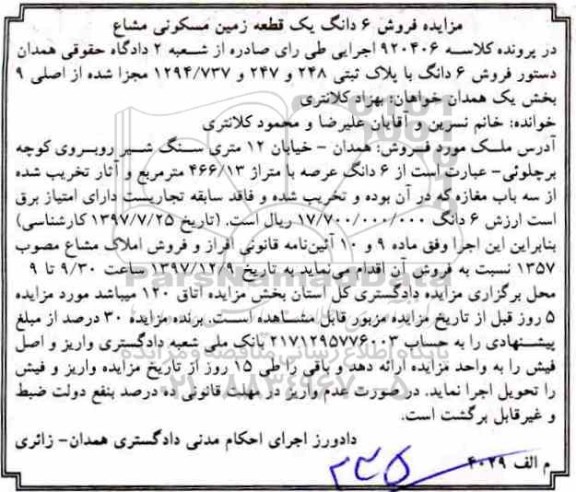 مزایده فروش ۶ دانگ یک قطعه زمین مسکونی مشاع
در پرونده کلاسه ۹۲۰۴۰۶ اجرایی طی رای صادره از شعبه ۲ دادگاه حقوقی همدان
دستور فروش ۶ دانگ با پلاک ثبتی ۲۴۸ و ۲۴۷ و ۱۲۹۴/۷۳۷ مجزا شده از اصلی ۹
بخش یک همدان خواهان: بهزاد کلانتری
خوانده: خانم نسرین و آقایان علیرضا و محمود کلانتری
آدرس ملک مورد فروش: همدان - خیابان ۱۲ متری سنگ شیر روبروی کوچه
برچلوئی- عبارت است از ۶ دانگ عرصه با متراژ ۴۶۶/۱۳ مترمربع و آثار تخریب شده
از سه باب مغازه که در آن بوده و تخریب شده و فاقد سابقه تجاریست دارای امتیاز برق
است ارزش ۶ دانگ ۱۷/۷۰۰/۰۰۰/۰۰۰ ریال است. (تاریخ ۱۳۹۷/۷/۲۵ کارشناسی)
بنابراین این اجرا وفق ماده ۹ و ۱۰ آئین‌نامه قانونی افراز و فروش املاک مشاع مصوب
۱۳۵۷ نسبت به فروش آن اقدام می‌نماید به تاریخ ۱۳۹۷/۱۲/۹ ساعت ۹/۳۰ تا ۹
محل برگزاری مزایده دادگستری کل استان بخش مزایده اتاق ۱۲۰ میباشد مورد مزایده
۵ روز قبل از تاریخ مزایده مزبور قابل مشاهده است. برنده مزایده ۳۰ درصد از مبلغ
پیشنهادی را به حساب ۲۱۷۱۲۹۵۷۷۶۰۰۳ بانک ملی شعبه دادگستری واریز و اصل
فیش را به واحد مزایده ارائه دهد و باقی را طی ۱۵ روز از تاریخ مزایده واریز و فیش
را تحویل اجرا نماید. در صورت عدم واریز در مهلت قانونی ده درصد بنفع دولت ضبط
و غیرقابل برگشت است.
دادورز اجرای احکام مدنی دادگستری همدان- زائری
م الف ۴۰۲۹
۲۲۵
ParsNamadData
پایگاه اطلاع رسانی مناقصه و مزایده
۰۲۱-۸۸۳۴۹۶۷۰-۵